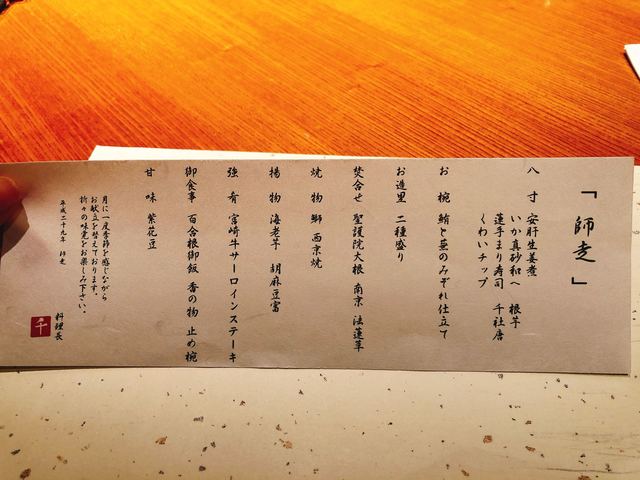 「師走」
八寸 安肝生姜煮
いか真砂和へ 根芋
蓮手まり寿司 千社唐
くわいチップ
お椀 鮹と蕪のみぞれ仕立て
お造里 二種盛り
焚合せ 聖護院大根 南京 法蓮草
焼物 鰤 西京焼
揚物 海老芋 胡麻豆富
強肴 宮崎牛サーロインステーキ
御食事 百合根御飯 香の物 止め椀
甘味 紫花豆
月に一度季節を感じながら
お献立を替えております。
折々の味覚をお楽しみ下さい。
平成二十九年 師走
料理長
千